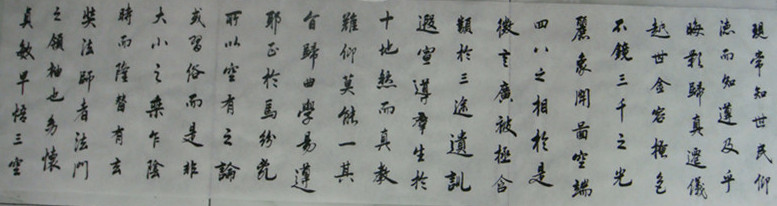 現常知世民仰
德而知遵及乎
晦影歸真遷儀
越世金容掩色
不鏡三千之光
麗象開圖空端
四八之相於是
微言廣被拯含
類於三途遺訓
遐宣導群生於
十地然而真教
難仰莫能一其
旨歸曲學易遵
耶正於焉紛糺
所以空有之論
或習俗而是非
大小之乘乍沿
時而隆替有玄
奘法師者法門
之領袖也幼懷
貞敏早悟三空